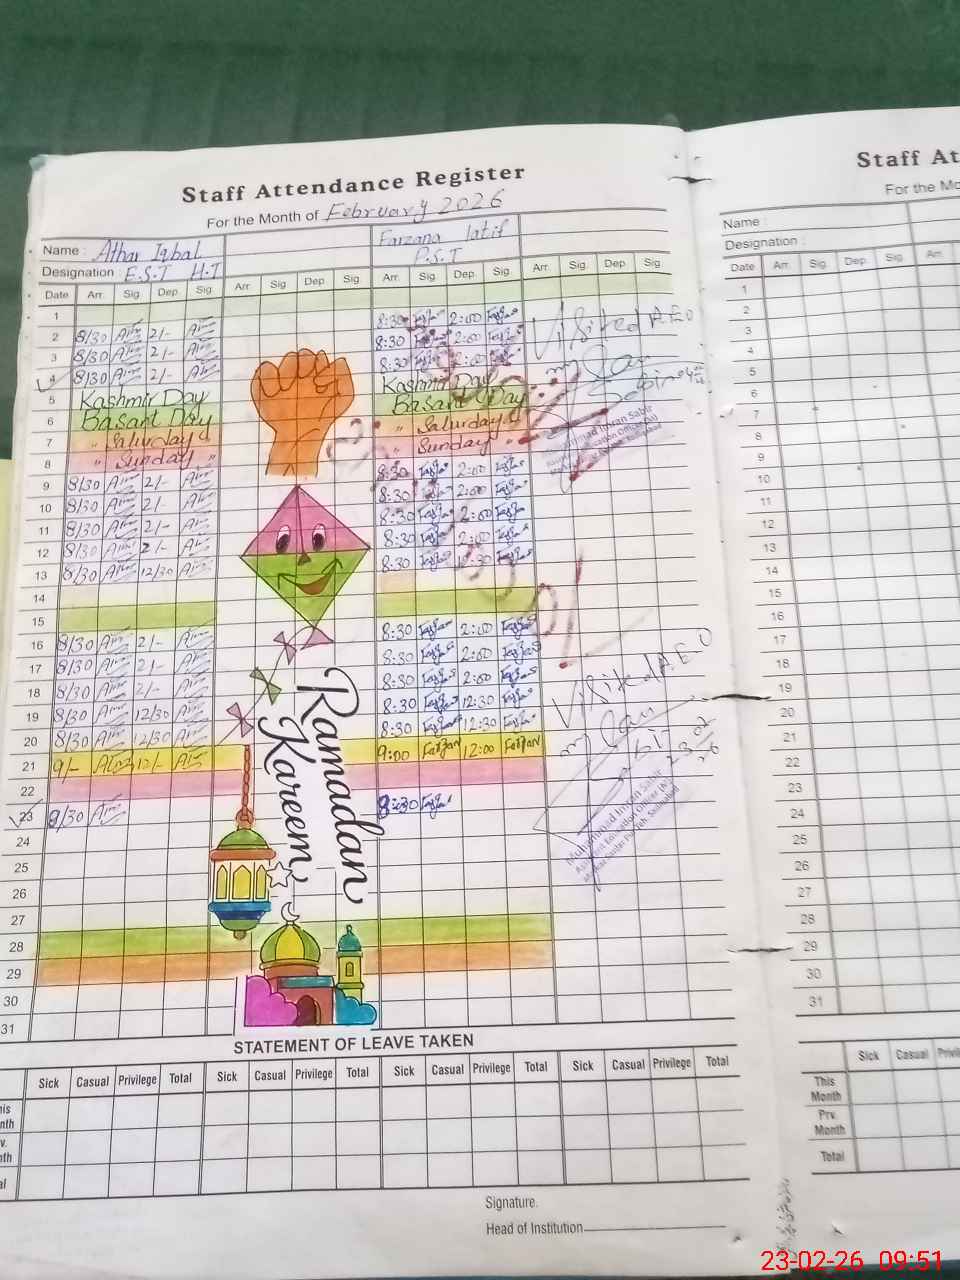 Staff Attendance Register
For the Month of February 2026
Name : Athar Iqbal Farzana latif
Designation : E.S.T H.T P.S.T
Date Arr. Sig. Dep. Sig. Arr. Sig. Dep. Sig. Arr. Sig. Dep. Sig. Arr. Sig. Dep. Sig.
1
2 8/30 2/- 8:30 2:00
3 8/30 2/- 8:30 2:00
4 8/30 2/- 8:30 2:00
5 Kashmir Day Kashmir Day
6 Basant Day Basant Day
7 " Saturday " " Saturday "
8 " Sunday " " Sunday "
9 8/30 2/- 8:30 2:00
10 8/30 2/- 8:30 2:00
11 8/30 2/- 8:30 2:00
12 8/30 2/- 8:30 2:00
13 8/30 12/30 8:30 12:30
14
15
16 8/30 2/- 8:30 2:00
17 8/30 2/- 8:30 2:00
18 8/30 2/- 8:30 2:00
19 8/30 12/30 8:30 12:30
20 8/30 12/30 8:30 12:30
21 9/- 12/- 9:00 Farzan 12:00 Farzan
22
23 8/30 8:30
24
25
26
27
28
29
30
31
Visited A.E.O
Muhammad Imran Sabir
Visited A.E.O
Muhammad Imran Sabir
Assistant Education Officer (M)
Ramadan
Kareem
STATEMENT OF LEAVE TAKEN
Sick Casual Privilege Total Sick Casual Privilege Total Sick Casual Privilege Total Sick Casual Privilege Total
Signature.
Head of Institution
Staff At
For the Mo
Name :
Designation :
Date Arr. Sig. Dep. Sig. Arr.
1
2
3
4
5
6
7
8
9
10
11
12
13
14
15
16
17
18
19
20
21
22
23
24
25
26
27
28
29
30
31
Sick Casual Privile
This Month
Prv. Month
Total
23-02-26 09:51